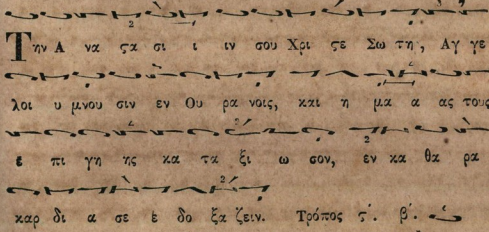 Την Α να ϛα σι ι ιν σου Χρι ϛε Σω τη, Αγ γε
λοι υ μνου σιν εν Ου ρα νοις, και η μα α ας τους
ε πι γη ης κα τα ξι ω σον, εν κα θα ρα
καρ δι α σε ε δο ξα ζειν. Τρόπος ϛ΄. β΄.